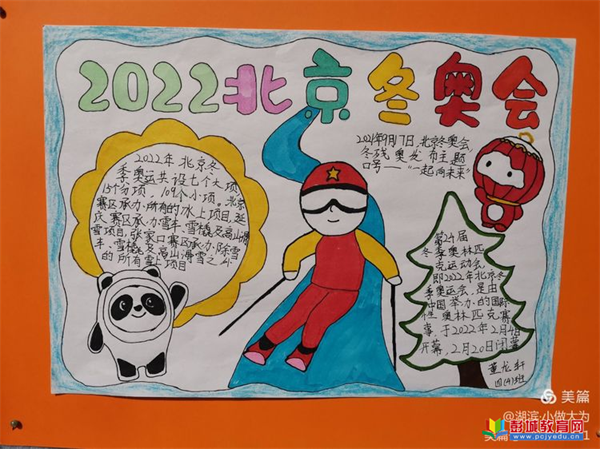 2022北京冬奥会
2021年9月17日,北京冬奥会,
冬残奥发布主题
口号——“一起向未来”
2022年北京冬
季奥运共设七个大项
15个分项,109个小项。北京
赛区承办所有的水上项目,延
庆赛区承办雪车、雪橇及高山滑
雪项目,张家口赛区承办除雪
车、雪橇及高山滑雪之外
的所有雪上项目
第24届
冬季奥林匹
克运动会,
即2022年北京冬
季奥运会,是由
中国举办的国际
性奥林匹克赛
事,于2022年2月4日
开幕,2月20日闭幕
董龙轩
四(4)班
美篇
@湖滨·小做大为
彭城教育网
www.pcjyedu.cn